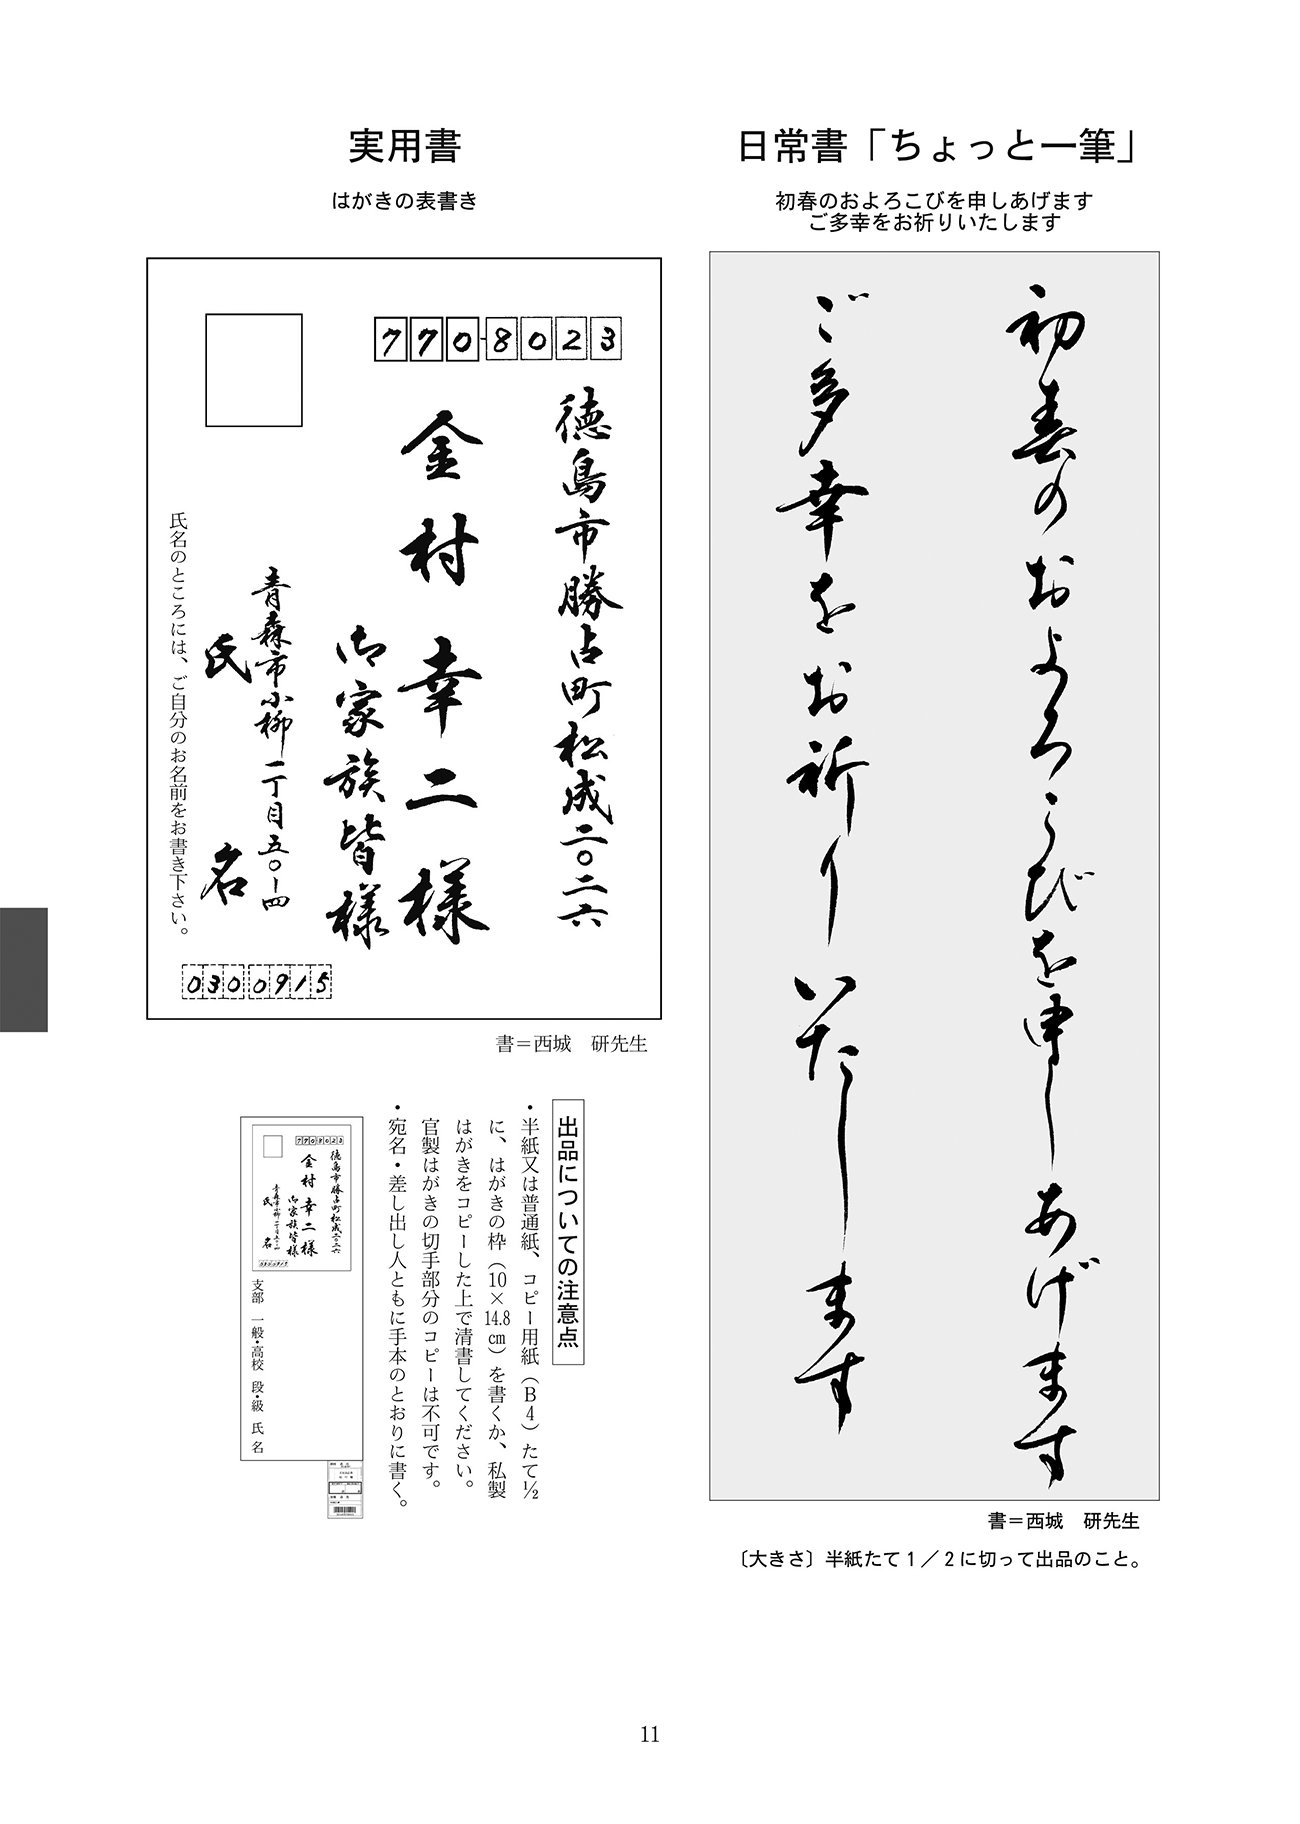 日常書「ちょっと一筆」
初春のおよろこびを申しあげます
ご多幸をお祈りいたします
初春のおよろこびを申しあげます
ご多幸をお祈りいたします
書＝西城　研先生
〔大きさ〕半紙たて１／２に切って出品のこと。
実用書
はがきの表書き
770-8023
徳島市勝占町松成二〇二六
金村幸二様
御家族皆様
青森市小柳一丁目五〇ー四
氏名
0300915
氏名のところには、ご自分のお名前をお書き下さい。
書＝西城　研先生
出品についての注意点
・半紙又は普通紙、コピー用紙（Ｂ４）たて½
に、はがきの枠（10×14.8㎝）を書くか、私製
はがきをコピーした上で清書してください。
官製はがきの切手部分のコピーは不可です。
・宛名・差し出し人ともに手本のとおりに書く。
7708023
徳島市勝占町松成二〇二六
金村幸二様
御家族皆様
青森市小柳一丁目五〇ー四
氏名
0300915
支部　一般・高校　段・級　氏名
11